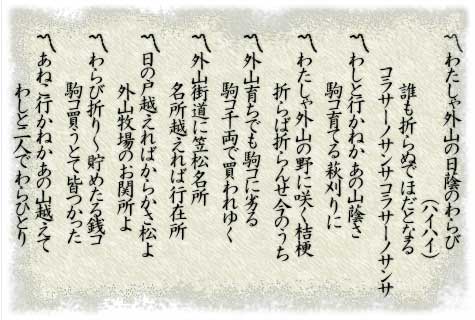 〽わたしゃ外山の日陰のわらび
（ハイハイ）
誰も折らぬでほだとなる
コラサーノサンサコラサーノサンサ
〽わしと行かねかあの山蔭さ
駒コ育てる萩刈りに
〽わたしゃ外山の野に咲く桔梗
折らば折らんせ今のうち
〽外山育ちでも駒コに劣る
駒コ千両で買われゆく
〽外山街道に笠松名所
名所越えれば行在所
〽日の戸越えればからかさ松よ
外山牧場のお関所よ
〽わらび折り〱貯めたる銭コ
駒コ買うとて皆つかった
〽あねこ行かねかあの山越えて
わしと二人でわらびとり